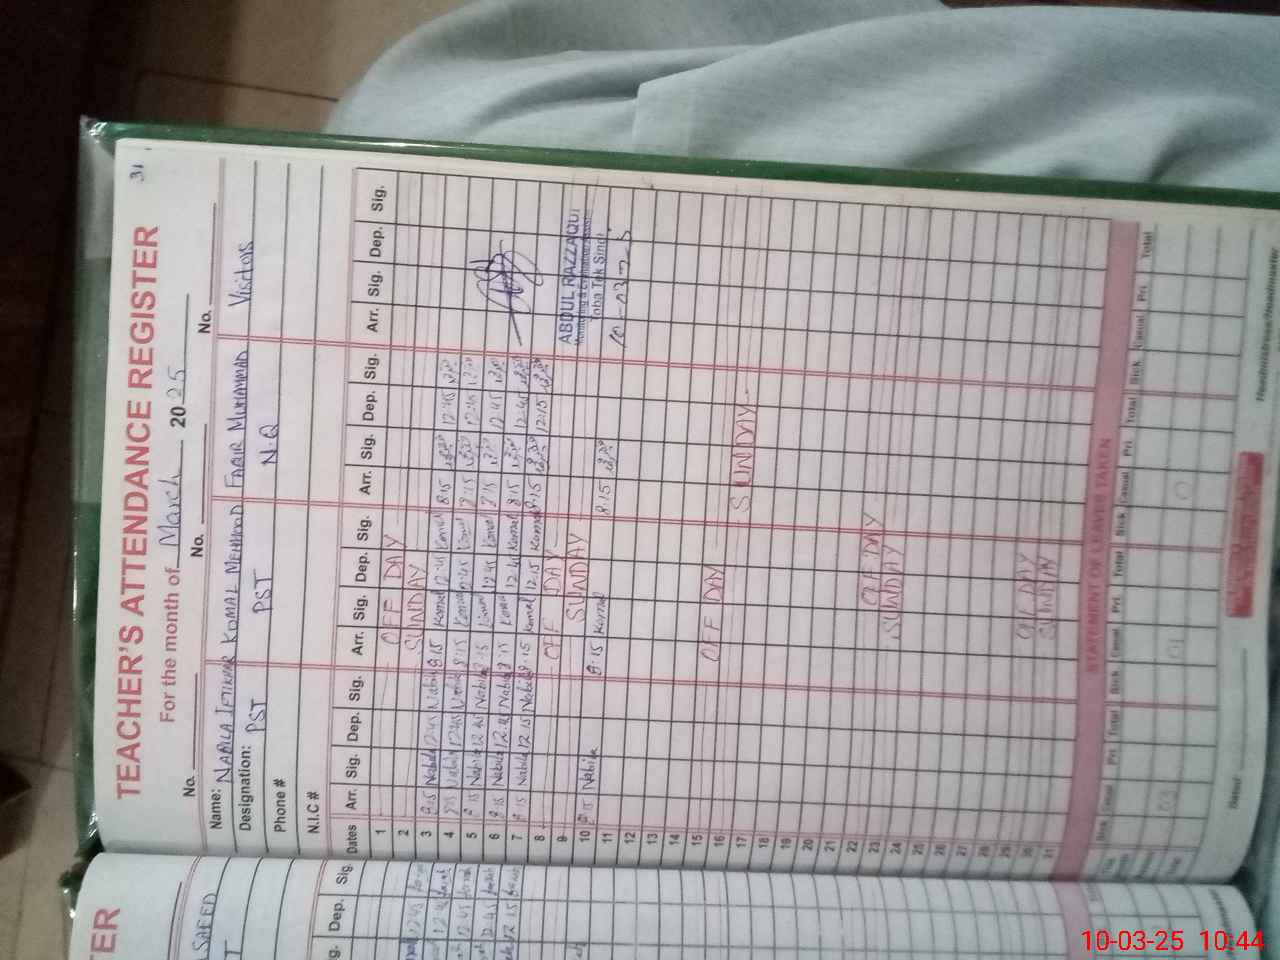 31
TEACHER'S ATTENDANCE REGISTER
For the month of March 2025
No. No. No.
Name: NABILA IFTIKHAR KOMAL MEHMOOD FAQIR MUHAMMAD Visitors
Designation: PST PST N.Q
Phone #
N.I.C #
Dates Arr. Sig. Dep. Sig. Arr. Sig. Dep. Sig. Arr. Sig. Dep. Sig. Arr. Sig. Dep. Sig.
1 OFF DAY
2 SUNDAY
3 8:15 Nabila 12:45 Nabila 8:15 Komal 12:45 Komal 8:15 12:45
4 8:15 Nabila 12:45 Nabila 8:15 Komal 12:45 Komal 8:15 12:45
5 8:15 Nabila 12:45 Nabila 8:15 Komal 12:45 Komal 8:15 12:45
6 8:15 Nabila 12:45 Nabila 8:15 Komal 12:45 Komal 8:15 12:45
7 8:15 Nabila 12:15 Nabila 8:15 Komal 12:15 Komal 8:15 12:15
8 OFF DAY
9 SUNDAY
ABDUL RAZZAQUI
Toba Tek Singh
10 8:15 Nabila 8:15 Komal 8:15
11
12
13
14
15 OFF DAY
16
17 SUNDAY
18
19
20
21
22 OFF DAY
23 SUNDAY
24
25
26
27
28
29 OFF DAY
30 SUNDAY
31
STATEMENT OF LEAVES TAKEN
Sick Casual Pri. Total Sick Casual Pri. Total Sick Casual Pri. Total Sick Casual Pri. Total
03 01 0
Dated:
Headmistress/Headmaster
TER
SAEED
Dep. Sig.
12:45
12:45
12:45
12:45
12:15
10-03-25 10:44